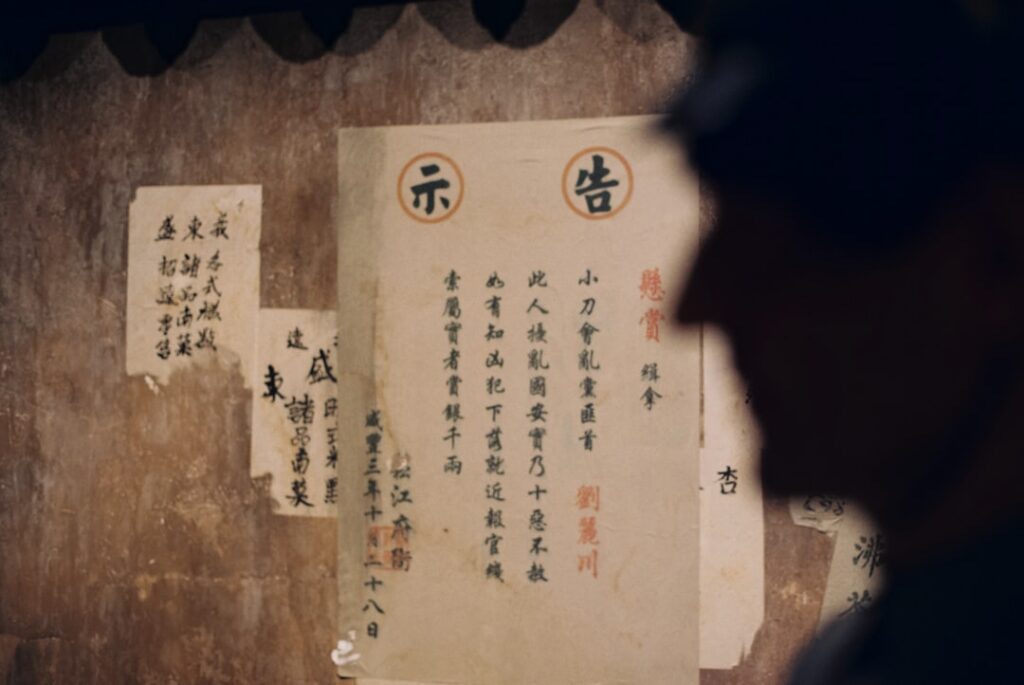 告示
懸賞
緝拿
小刀會亂黨匪首 劉麗川
此人擾亂國安實乃十惡不赦
如有知凶犯下落就近報官綫
索屬實者賞銀千兩
松江府衙
咸豐三年十月二十八日
杏
盛
東 諸品南菓
遠
東 諸品南菓